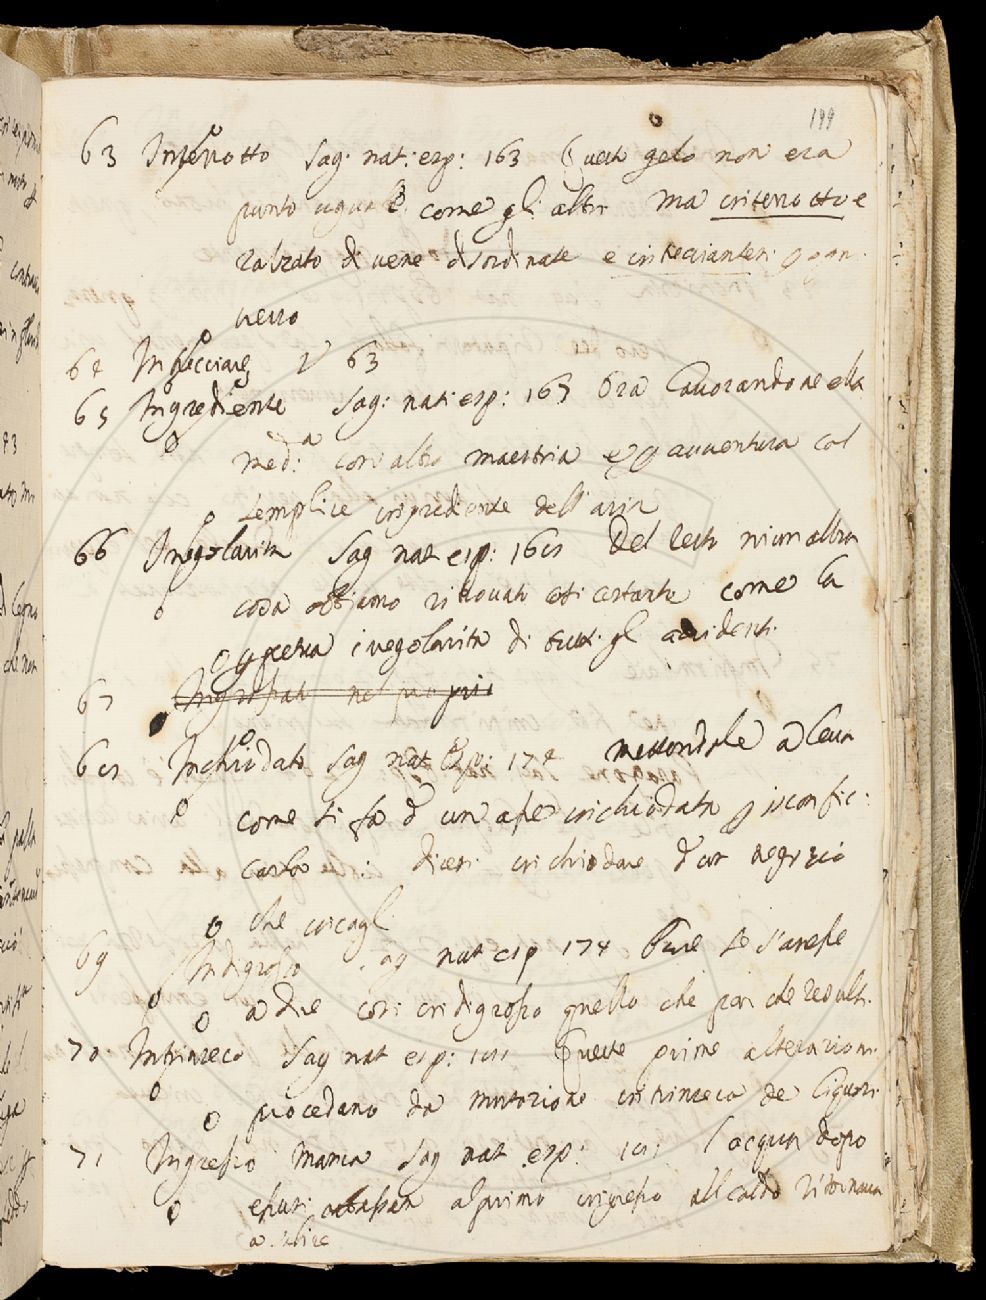 199
63 Interrotto Sag: nat: esp: 163 Questo gelo non era
punto uguale come gl'altri ma interrotto e
rabzato di vene disordinate e intrecciantesi p ogni
verso
64 Intrecciare V 63
65 Ingrediente Sag: nat: esp: 167 Ora lavorando ne ella
med:a con altra maestria e p avventura col
semplice ingrediente dell'aria
66 Inegolavita Sag nat esp: 168 Del resto niun altra
cosa abbiamo ritrovata così costante come la
perpetua inegolarita di tutti gl accidenti
67
68 Inchiodato Sag nat esp: 174 mettendole a leva
come si fa d'un asse inchiodata p isconfic:
carla dicesi inchiodare d'un negozio
che incagli
69 Indigrosso Sag nat esp 174 Pure se s'avesse
a dire così indigrosso quello che pare che resulti
70 Intrinseco Sag nat esp: 181 Queste prime alterazioni
procedano da mutazione intrinseca de liquori
71 Ingresso Sag nat esp: 181 l'acqua dopo
essersi abbassata al primo ingresso all caldo ritornava
a salire